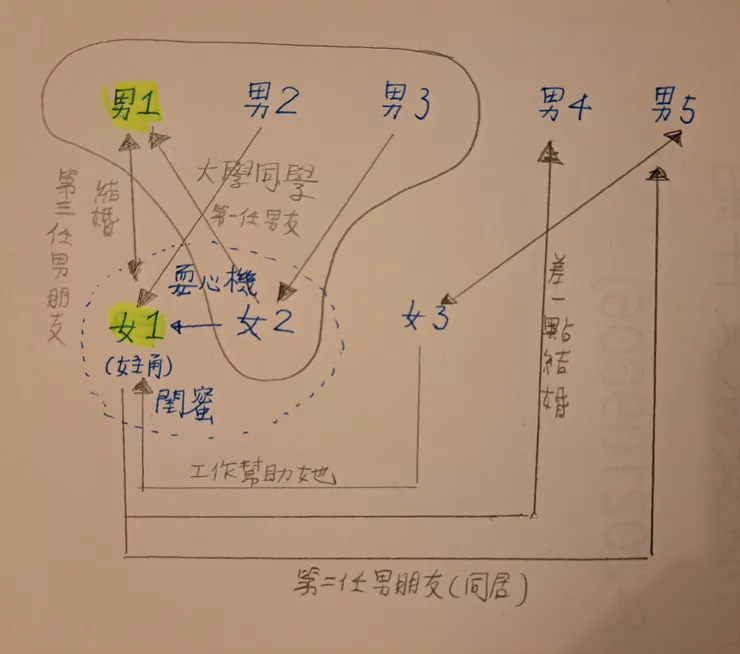 男1
男2
男3
男4
男5
大學同學
第一任男友
結婚
第三任男朋友
耍心機
女1
女2
女3
(女主角)
閨蜜
差一點結婚
工作幫助她
第二任男朋友(同居)